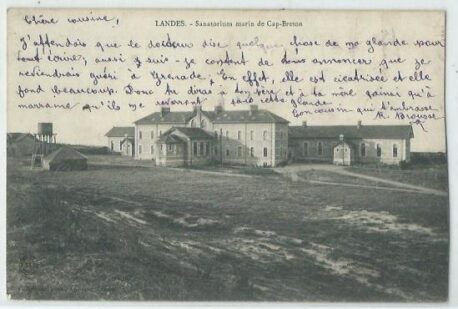 Chère cousine,
LANDES. - Sanatorium marin de Cap-Breton
J'attendais que le docteur dise quelques chose de ma glande pour
tout écrire, aussi je suis content de vous annoncer que je
reviendrais guéri à Grenade. En effet, elle est cicatrisée et elle
fond beaucoup. Donc tu diras à ton père et à ta mère qu'à
marraine qu'ils me reverront sans cette glande.
Ton cousin qui t'embrasse
R. Brousse